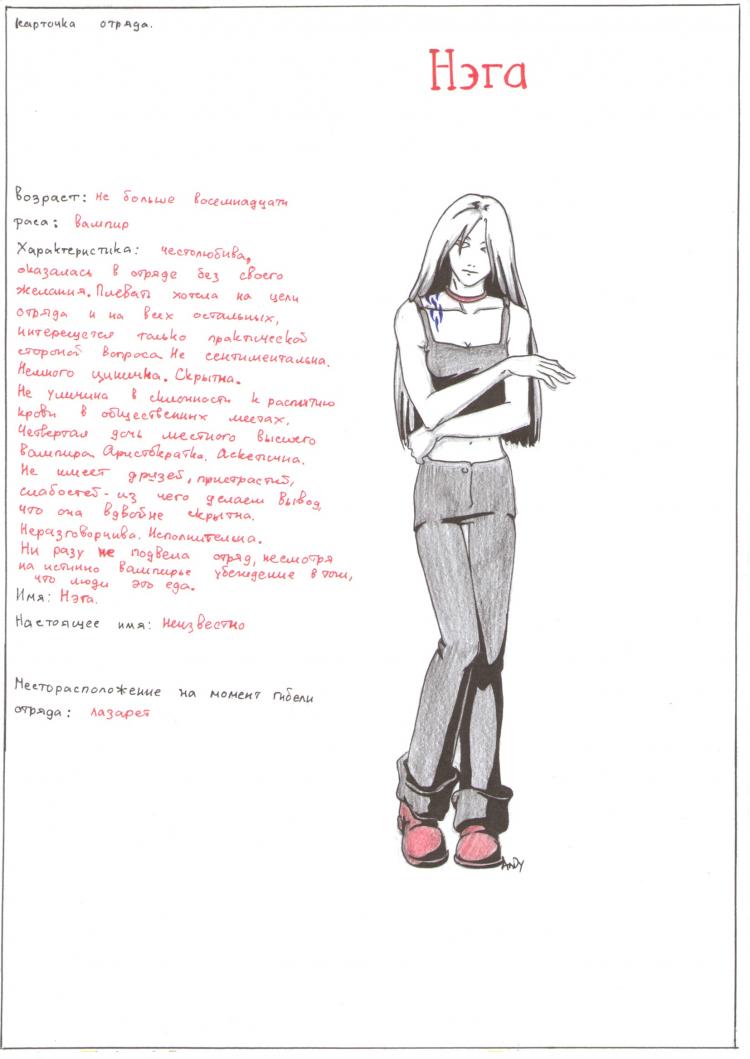 Карточка отряда.
Нэга
возраст: не больше восемнадцати
раса: вампир
Характеристика: честолюбива,
оказалась в отряде без своего
желания. Плевать хотела на цели
отряда и на всех остальных,
интересуется только практической
стороной вопроса. Не сентиментальна.
Немного цинична. Скрытна.
Не уличина в склонности к распитию
крови в общественных местах.
Четвертая дочь местного высшего
вампира. Аристократка. Аскетична.
Не имеет друзей, пристрастий,
слабостей - из чего делаем вывод,
что она вдвойне скрытна.
Неразговорчива. Исполнительна.
Ни разу не подвела отряд, несмотря
на истинно вампирье убеждение в том,
что люди это еда.
Имя: Нэга.
Настоящее имя: неизвестно
Месторасположение на момент гибели
отряда: лазарет
ANDY